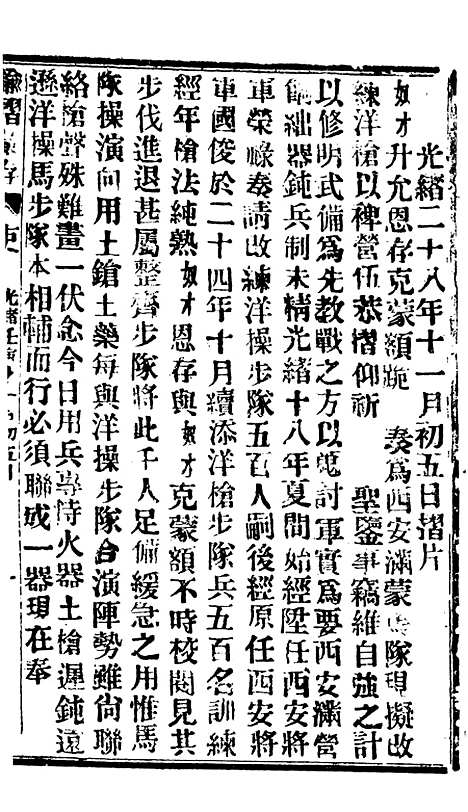 光緒二十八年十一月初五日摺片
奴才升允恩存克蒙額跪　奏爲西安滿蒙馬隊現擬改
練洋槍以裨營伍恭摺仰祈　聖鑒事竊維自強之計
以修明武備爲先敎戰之方以蒐討軍實爲要西安滿營
餉絀器鈍兵制未精光緒十八年夏間始經陞任西安將
軍榮祿奏請改練洋操步隊五百人嗣後經原任西安將
軍國俊於二十四年十月續添洋槍步隊兵五百名訓練
經年槍法純熟奴才恩存與奴才克蒙額不時校閱見其
步伐進退甚屬整齊步隊將此千人足備緩急之用惟馬
隊操演向用土鎗土藥每與洋操步隊合演陣勢雖尙聯
絡槍聲殊難畫一伏念今日用兵專恃火器土槍遲鈍遠
遜洋操馬步隊本相輔而行必須聯成一器現在奉
諭摺彙存　光緒壬寅　初五日　一